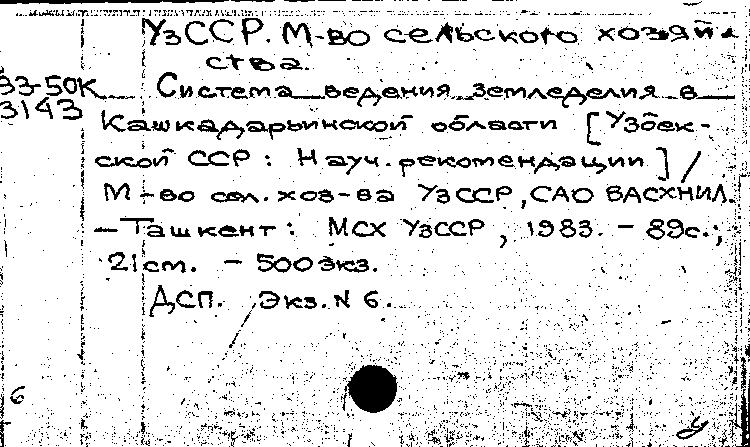 УзССР. М-во сельского хозяй-
ства.
83-50К
3143
Система ведения земледелия в
Кашкадарьинской области [Узбек-
ской ССР: Науч. рекомендации] /
М-во сел. хоз-ва УзССР, САО ВАСХНИЛ.
— Ташкент: МСХ УзССР, 1983. - 89с.;
21 см. - 500 экз.
ДСП. Экз. N 6.
6